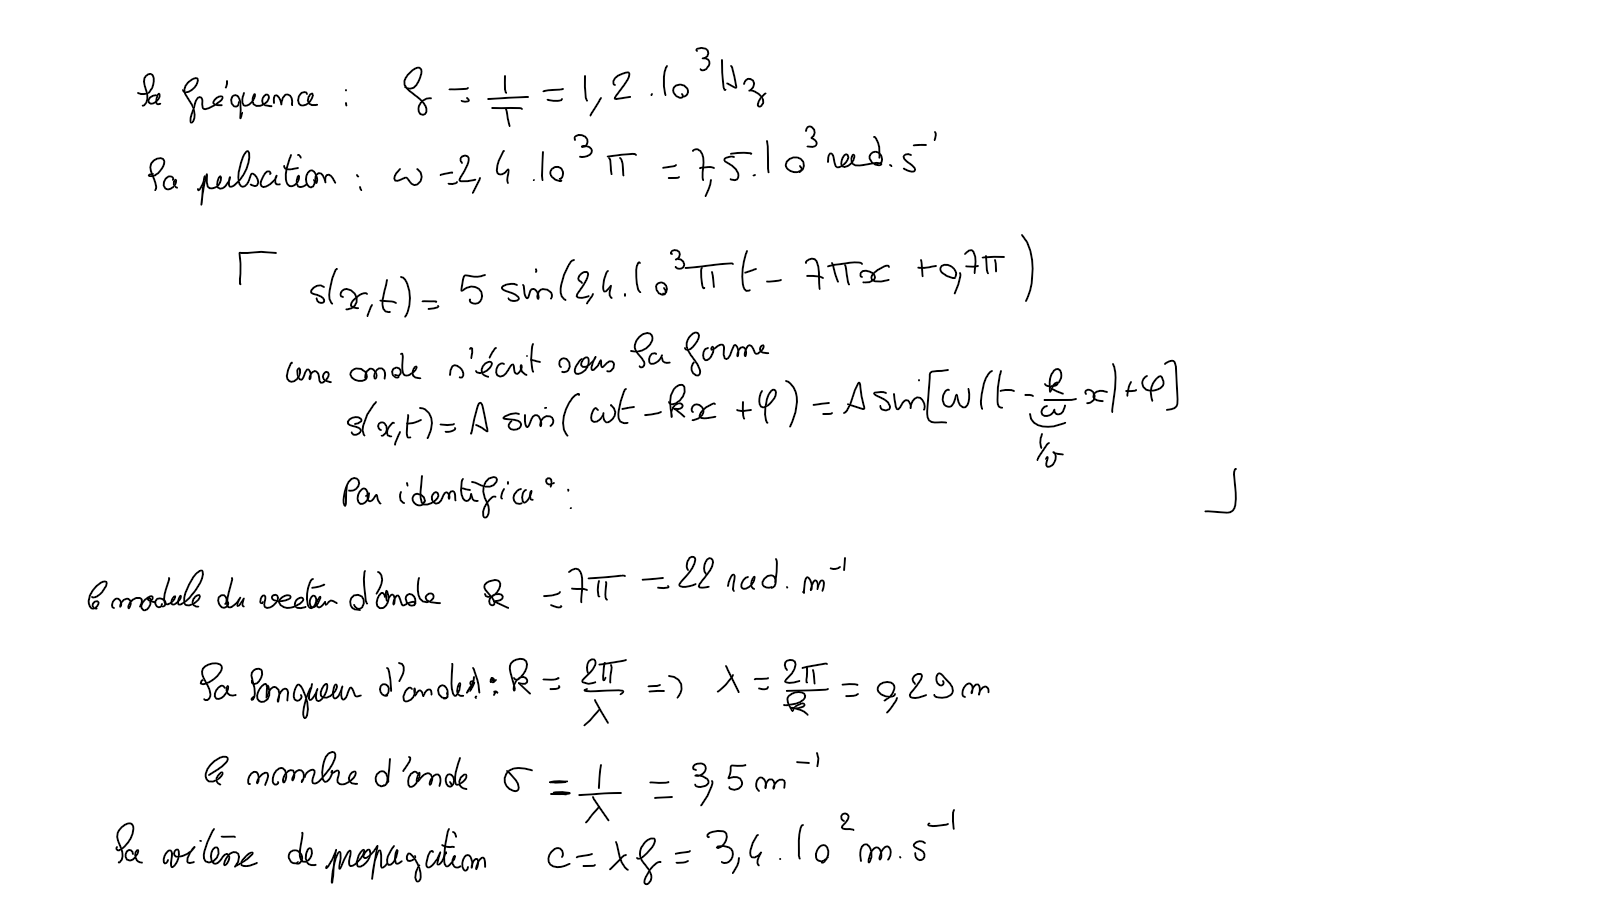 la fréquence : f = 1/T = 1,2 . 10³ Hz
la pulsation : ω = 2,4 . 10³ π = 7,5 . 10³ rad . s⁻¹
s(x,t) = 5 sin(2,4 . 10³ π t - 7πx + 0,7π)
une onde s'écrit sous la forme
s(x,t) = A sin(ωt - kx + φ) = A sin[ω(t - k/ω x) + φ]
1/v
Par identifica° :
le module du vecteur d'onde k = 7π = 22 rad . m⁻¹
la longueur d'onde λ : k = 2π/λ => λ = 2π/k = 0,29 m
le nombre d'onde σ = 1/λ = 3,5 m⁻¹
la vitesse de propagation c = λf = 3,4 . 10² m . s⁻¹